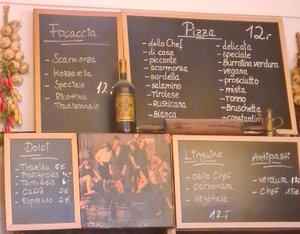 Focaccia
- Scarmorza
- Mozzarella
- Speciale
- Ricottina
Tradizionale
12,-
Pizza 12,-
- dello Chef
- di casa
- piccante
- scarmorza
- sardella
- salamino
- Tirolese
- Rusticana
- Bianca
- delicata
- speciale
- Burratina verdura
- vegana
- prosciutto
- mista
- Tonno
- Bruschetta
- constantin
Dolci
- Tiramisu 6€
- Profiteroles 4,-
- Tartufeis 6,-
- Caffè 2€
- Espresso 2€
Linguine
- dello Chef
- Carbonara
- Vegetale
12,-
Antipasti
- verdura 12,-
- Chef 15€